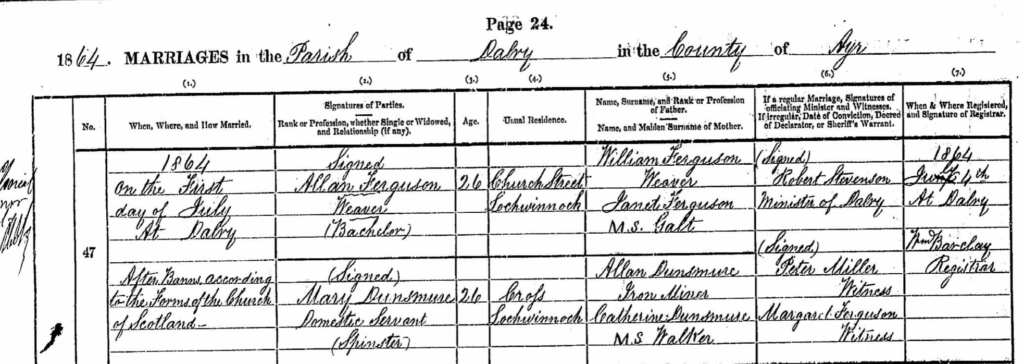 Page 24.
1864. MARRIAGES in the Parish of Dalry in the County of Ayr
(1.) (2.) (3.) (4.) (5.) (6.) (7.)
No.
When, Where, and How Married.
Signatures of Parties.
Rank or Profession, whether Single or Widowed, and Relationship (if any).
Age.
Usual Residence.
Name, Surname, and Rank or Profession of Father.
Name, and Maiden Surname of Mother.
If a regular Marriage, Signatures of officiating Minister and Witnesses.
If irregular, Date of Conviction, Decree of Declarator, or Sheriff's Warrant.
When & Where Registered, and Signature of Registrar.
47
1864
On the First
day of July
At Dalry
After Banns according
to the Forms of the Church
of Scotland
Signed
Allan Ferguson
Weaver
(Bachelor)
(Signed)
Mary Dunsmure
Domestic Servant
(Spinster)
26
26
Church Street
Lochwinnoch
Cross
Lochwinnoch
William Ferguson
Weaver
Janet Ferguson
M.S. Galt
Allan Dunsmure
Iron Miner
Catherine Dunsmure
M.S. Walker
(Signed)
Robert Stevenson
Minister of Dalry
(Signed)
Peter Miller
Witness
Margaret Ferguson
Witness
1864
4th
At Dalry
Wm Barclay
Registrar